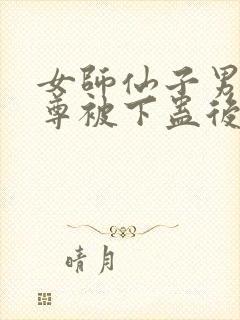 女師仙子男
尊被下蠱後
晴月